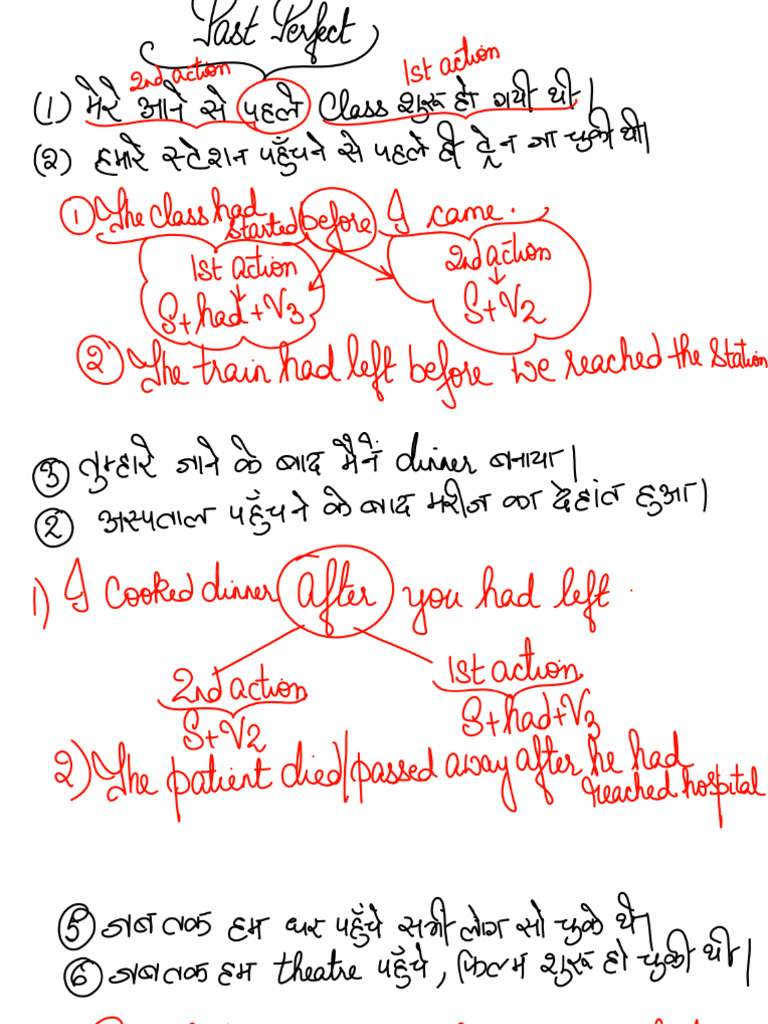 Past Perfect
2nd action 1st action
(1) मेरे आने से पहले Class शुरू हो गयी थी।
(2) हमारे स्टेशन पहुँचने से पहले ही ट्रेन जा चुकी थी।
① The class had started before I came.
1st action 2nd action
S+had+V3 S+V2
② The train had left before we reached the station
③ तुम्हारे जाने के बाद मैंने dinner बनाया।
② अस्पताल पहुँचने के बाद मरीज का देहांत हुआ।
1) I cooked dinner after you had left.
2nd action 1st action
S+V2 S+had+V3
2) The patient died/passed away after he had reached hospital
⑤ जब तक हम घर पहुँचे सभी लोग सो चुके थे।
⑥ जब तक हम theatre पहुँचे, फिल्म शुरू हो चुकी थी।